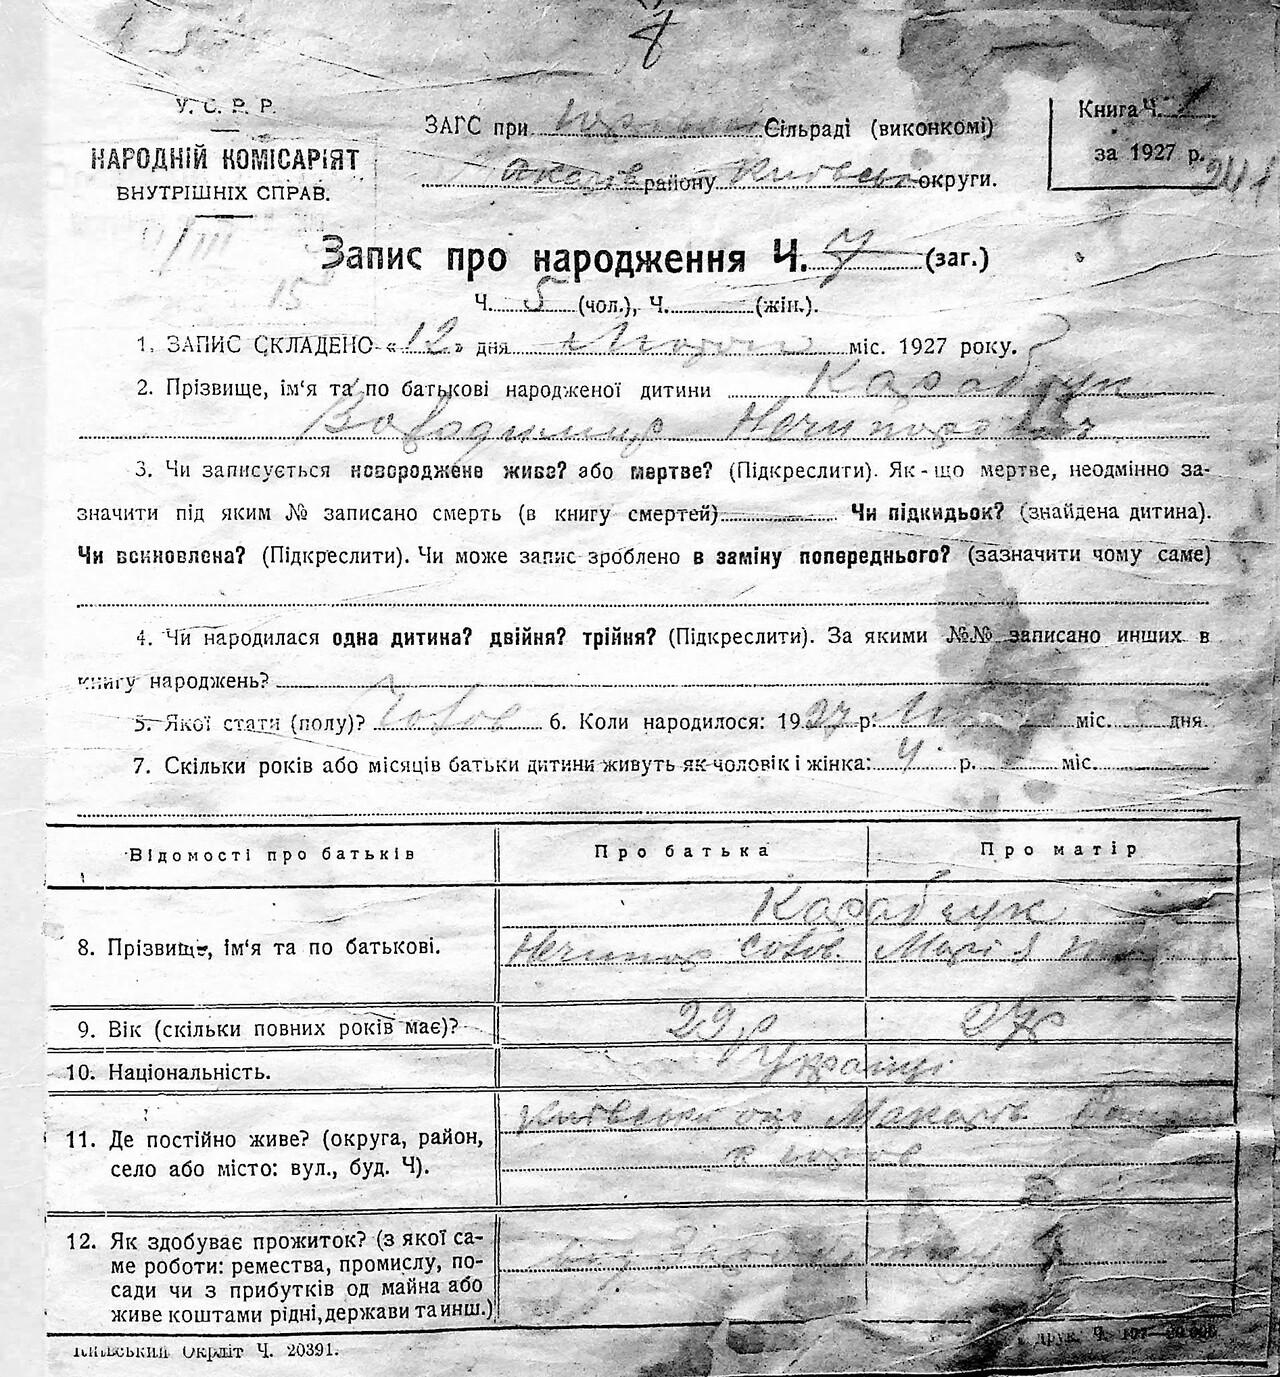 7
У. С. Р. Р.
НАРОДНІЙ КОМІСАРІЯТ
ВНУТРІШНІХ СПРАВ.
ЗАГС при Сільраді (виконкомі)
району Київськ округи.
Книга Ч.
за 1927 р.
241
III
15
Запис про народження Ч. 7 (заг.)
Ч. 5 (чол.), Ч. (жін.).
1. ЗАПИС СКЛАДЕНО «12» дня міс. 1927 року.
2. Прізвище, ім'я та по батькові народженої дитини Карабчук
Володимир Ничипорович
3. Чи записується новороджене живе? або мертве? (Підкреслити). Як-що мертве, неодмінно за-
значити під яким № записано смерть (в книгу смертей) Чи підкидьок? (знайдена дитина).
Чи всиновлена? (Підкреслити). Чи може запис зроблено в заміну попереднього? (зазначити чому саме)
4. Чи народилася одна дитина? двійня? трійня? (Підкреслити). За якими №№ записано инших в
книгу народжень?
5. Якої стати (полу)? Чолов 6. Коли народилося: 1927 р. міс. дня.
7. Скільки років або місяців батьки дитини живуть як чоловік і жінка: 4 р. міс.
Відомості про батьків
Про батька
Про матір
8. Прізвище, ім'я та по батькові.
Карабчук
Ничипор Сов. Марія
9. Вік (скільки повних років має)?
29 р
27 р
10. Національність.
Українці
11. Де постійно живе? (округа, район,
село або місто: вул., буд. Ч).
Київськ окр Макарів
12. Як здобуває прожиток? (з якої са-
ме роботи: ремества, промислу, по-
сади чи з прибутків од майна або
живе коштами рідні, держави та инш.)
Київський Окрліт Ч. 20391.
друк. Ч.